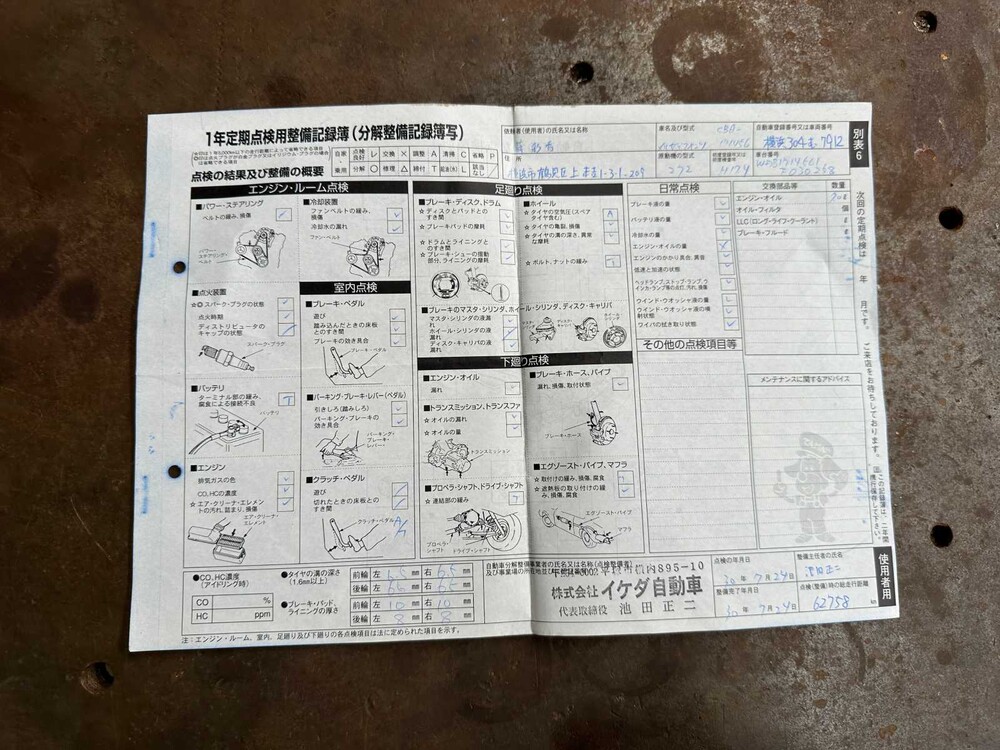 1年定期点検用整備記録簿(分解整備記録簿写)
点検の結果及び整備の概要
自家
乗用
点検良好 レ 交換 × 調整 A 清掃 C 省略 P
分解 ○ 修理 △ 締付 T 該当なし ／
依頼者(使用者)の氏名又は名称
住所
車名及び型式
原動機の型式
272
自動車登録番号又は車両番号
横浜304 む 7912
車台番号
別表6
エンジン・ルーム点検
■パワー・ステアリング
ベルトの緩み、損傷
ステアリング・ベルト
■冷却装置
ファンベルトの緩み、損傷
冷却水の漏れ
ファン・ベルト
■点火装置
☆◎スパーク・プラグの状態
点火時期
ディストリビュータのキャップの状態
スパーク・プラグ
■バッテリ
ターミナル部の緩み、腐食による接続不良
T
バッテリ
■エンジン
排気ガスの色
CO、HCの濃度
☆エア・クリーナ・エレメントの汚れ、詰まり、損傷
エア・クリーナ・エレメント
室内点検
■ブレーキ・ペダル
遊び
踏み込んだときの床板とのすき間
ブレーキの効き具合
ブレーキ・ペダル
■パーキング・ブレーキ・レバー(ペダル)
引きしろ(踏みしろ)
パーキング・ブレーキの効き具合
パーキング・ブレーキ・レバー
■クラッチ・ペダル
遊び
切れたときの床板とのすき間
クラッチ・ペダル
足廻り点検
■ブレーキ・ディスク、ドラム
☆ディスクとパッドとのすき間
☆ブレーキパッドの摩耗
☆ドラムとライニングとのすき間
☆ブレーキ・シューの摺動部分、ライニングの摩耗
■ホイール
☆タイヤの空気圧(スペアタイヤ含む)
A
☆タイヤの亀裂、損傷
☆タイヤの溝の深さ、異常な摩耗
☆ボルト、ナットの緩み
T
■ブレーキのマスタ・シリンダ、ホイール・シリンダ、ディスク・キャリパ
マスタ・シリンダの液漏れ
ホイール・シリンダの液漏れ
ディスク・キャリパの液漏れ
下廻り点検
■エンジン・オイル
漏れ
■トランスミッション、トランスファ
☆オイルの漏れ
☆オイルの量
トランスミッション
■プロペラ・シャフト、ドライブ・シャフト
☆連結部の緩み
プロペラ・シャフト
ドライブ・シャフト
■ブレーキ・ホース、パイプ
漏れ、損傷、取付状態
ブレーキ・ホース
■エグゾースト・パイプ、マフラ
☆取付けの緩み、損傷、腐食
☆遮熱板の取り付けの緩み、損傷、腐食
エグゾースト・パイプ
マフラ
日常点検
ブレーキ液の量
バッテリ液の量
冷却水の量
エンジン・オイルの量
エンジンのかかり具合、異音
低速と加速の状態
ウインド・ウオッシャ液の量
ウインド・ウオッシャ液の噴射状態
ワイパの拭き取り状態
その他の点検項目等
交換部品等 数量
エンジン・オイル
オイル・フィルタ 個
LLC(ロング・ライフ・クーラント)
ブレーキ・フルード
メンテナンスに関するアドバイス
次回の定期点検は 年 月です。ご来店をお待ちしております。
使用者用
●CO、HC濃度(アイドリング時)
CO %
HC ppm
●タイヤの溝の深さ(1.6mm以上)
前輪 左 mm 右 mm
後輪 左 mm 右 mm
●ブレーキ・パッド、ライニングの厚さ
前輪 左 10 mm 右 10 mm
後輪 左 8 mm 右 8 mm
株式会社 イケダ自動車
代表取締役 池田正二
点検の年月日
30年 7月24日
整備完了年月日
30年 7月24日
整備主任者の氏名
池田正二
点検(整備)時の総走行距離
62758 km
注：エンジン・ルーム、室内、足廻り及び下廻りの各点検項目は法に定められた項目を示す。